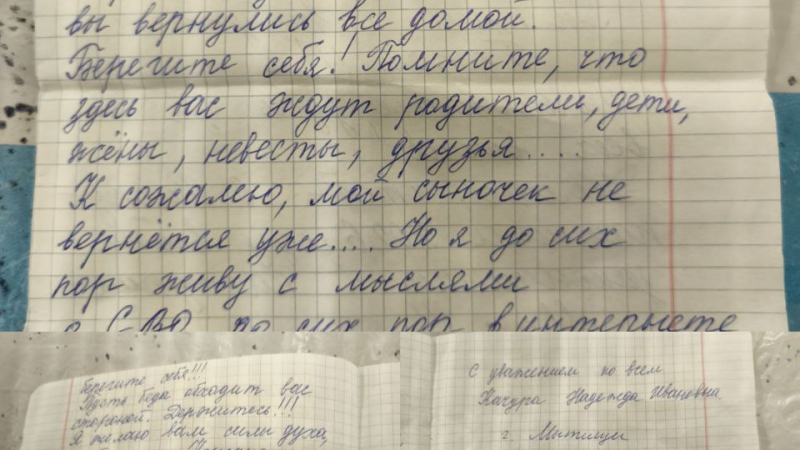 вы вернулись все домой.
Берегите себя! Помните, что
здесь вас ждут родители, дети,
жёны, невесты, друзья....
К сожалею, мой сыночек не
вернётся уже.... Но я до сих
пор живу с мыслями
о СВО, до сих пор в интернете
Берегите себя!!!
Пусть беда обходит вас
стороной. Держитесь!!!
Я желаю вам силы духа,
С уважением ко всем
Качура Надежда Ивановна
г. Мытищи